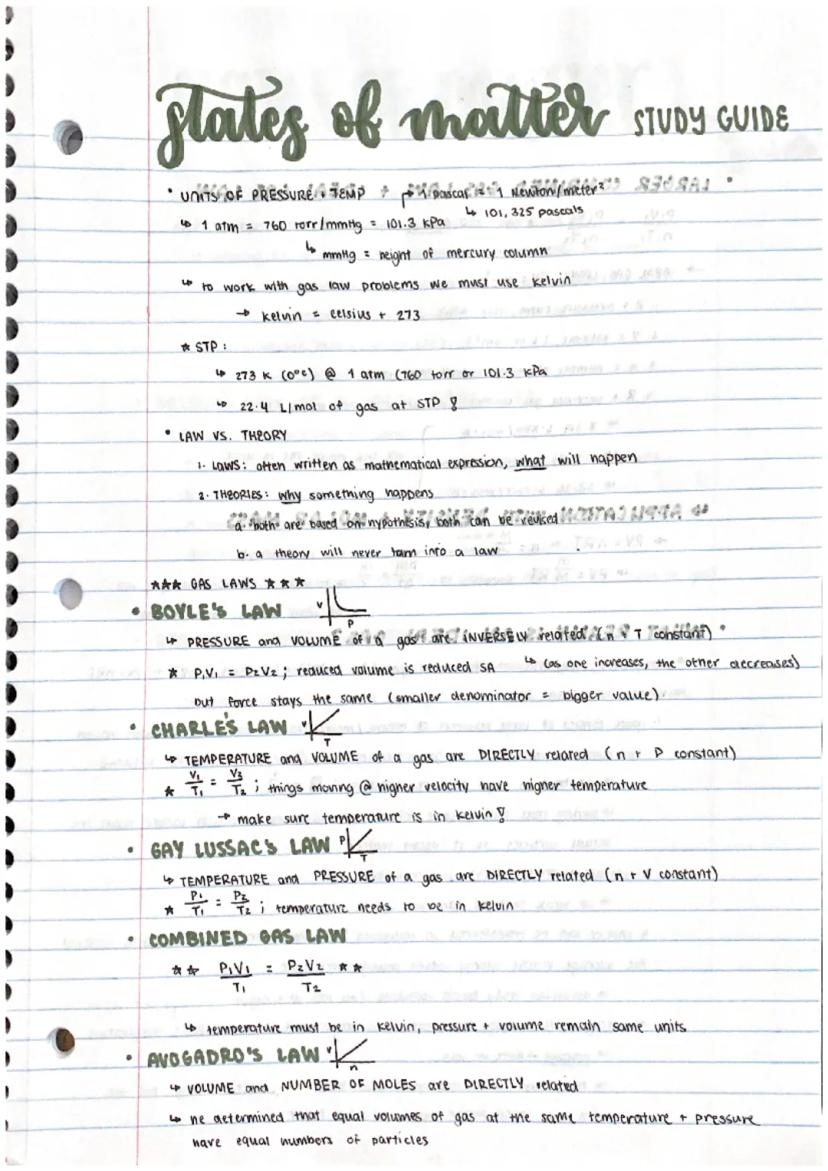 states of matter STUDY GUIDE
• UNITS OF PRESSURE + TEMP → 1 pascal = 1 Newton/meter²
↳ 1 atm = 760 torr/mmHg = 101.3 kPa ↳ 101,325 pascals
↳ mmHg = height of mercury column
↳ to work with gas law problems we must use kelvin
→ kelvin = celsius + 273
★ STP:
↳ 273 K (0°C) @ 1 atm (760 torr or 101.3 kPa
↳ 22.4 L/mol of gas at STP !
• LAW VS. THEORY
1. LAWS: often written as mathematical expression, what will happen
2. THEORIES: why something happens
a. both are based on hypothesis, both can be revised
b. a theory will never turn into a law
★★★ GAS LAWS ★★★
• BOYLE'S LAW V P
↳ PRESSURE and VOLUME of a gas are INVERSELY related (n + T constant)
★ P₁V₁ = P₂V₂; reduced volume is reduced SA ↳ (as one increases, the other decreases)
but force stays the same (smaller denominator = bigger value)
• CHARLE'S LAW V T
↳ TEMPERATURE and VOLUME of a gas are DIRECTLY related (n + P constant)
★ V₁/T₁ = V₂/T₂; things moving @ higher velocity have higher temperature
→ make sure temperature is in kelvin !
• GAY LUSSAC'S LAW P T
↳ TEMPERATURE and PRESSURE of a gas are DIRECTLY related (n + V constant)
★ P₁/T₁ = P₂/T₂; temperature needs to be in kelvin
• COMBINED GAS LAW
★★ P₁V₁/T₁ = P₂V₂/T₂ ★★
↳ temperature must be in kelvin, pressure + volume remain same units
• AVOGADRO'S LAW V n
↳ VOLUME and NUMBER OF MOLES are DIRECTLY related
↳ he determined that equal volumes of gas at the same temperature + pressure
have equal numbers of particles